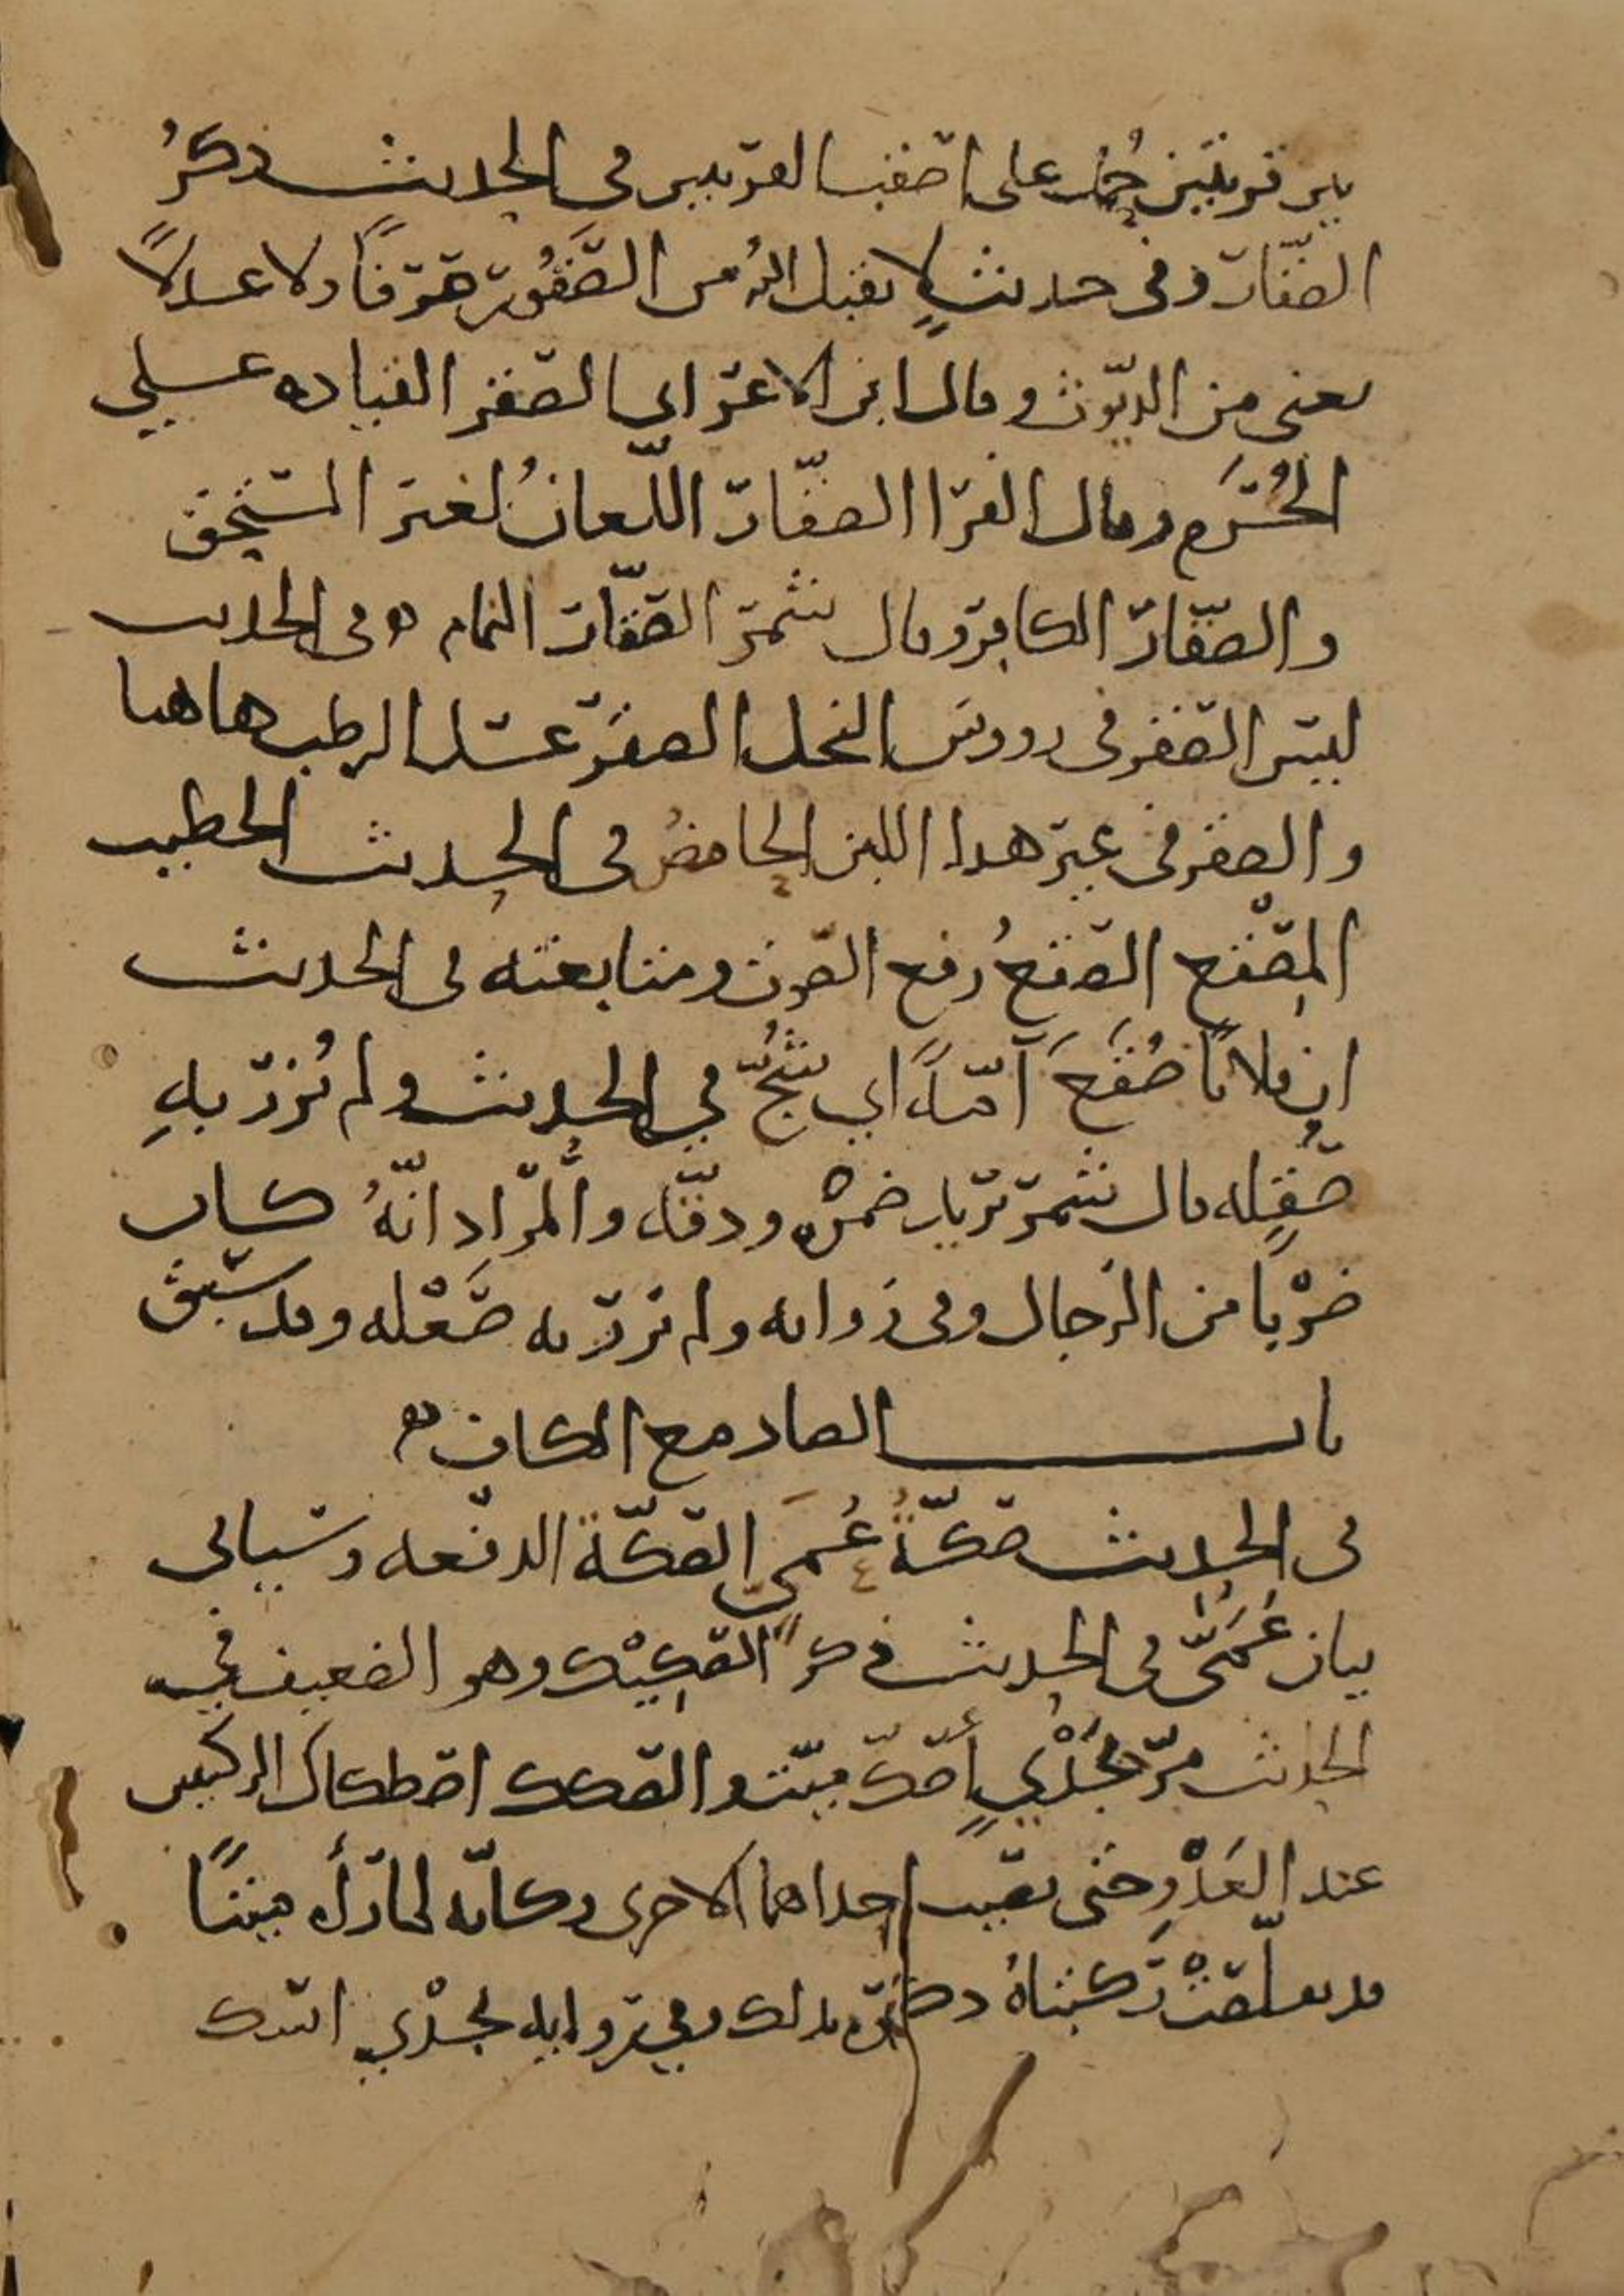 بين قريتين حُمل على اصقب القريتين في الحديث ذكرُ
الصقّار وفي حديثٍ لا يقبل الله من الصَّقُور صرفًا ولا عدلًا
يعني من الديّوث وقال ابن الاعرابي الصقر القياده على
الحُرَم وقال الفرا الصقّار اللّعانُ لغير المستحق
والصقّار الكافر وقال شمر الصقّار النمام ه في الحديث
ليس الصقر في رووس النخل الصقر عسل الرطب هاهنا
والصقر في غير هذا اللبن الحامضُ في الحديث الخطيب
المِصْقع الصقعُ رفع الصوت ومتابعته في الحديث
ان فلانًا صُقِعَ آمّةً اي شُجّ في الحديث ولم تُزرِ بهِ
صُقْله قال شمر تريد ضمره ودقّته والمراد انّهُ كان
ضرْبًا من الرجال وفي روايه ولم تزر به صَعْله وقد سبق
باب الصاد مع الكاف ه
في الحديث صكّةُ عُمَيّ الصكّة الدفعه وسياتي
بيان عُمَيّ في الحديث ذكر الصكِيْك وهو الضعيف في
الحديث مرّ بجَدْيٍ أصكّ ميّت والصكك اصطكاك الركبتين
عند العَدْوِ حتى تصيب احداهما الاخرى وكانّه لمّا رأه ميتًا
قد تقلّصَتْ ركبتاهُ ذكره بذلك وفي روايه بجدْي اسك